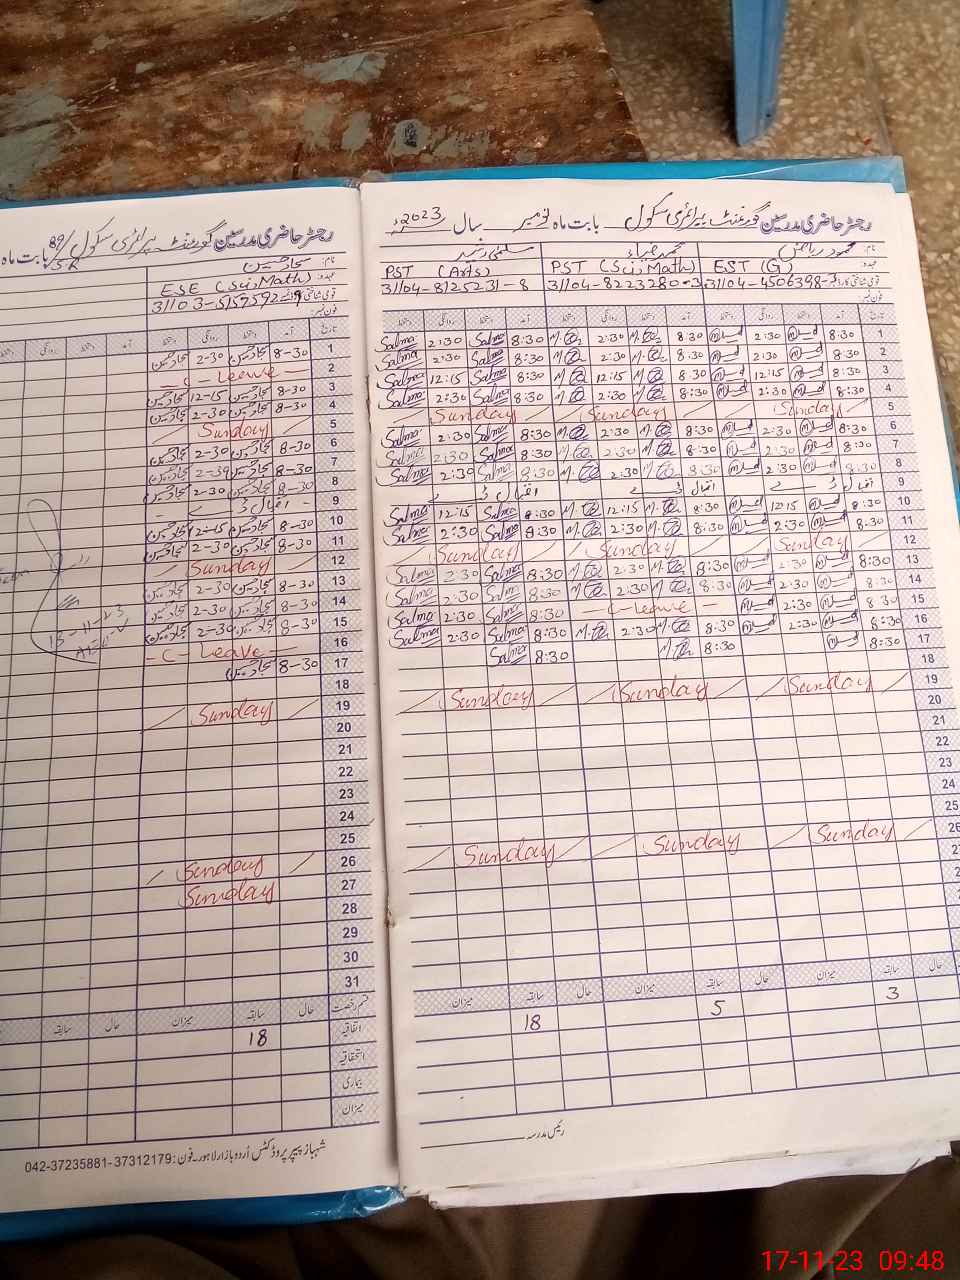 رجسٹر حاضری مدرسین گورنمنٹ پرائمری سکول بابت ماہ نومبر سال 2023ء
نام: محمود ریاض محمد ضیاء سلمیٰ رشید
عہدہ: EST (G) PST (Sci Math) PST (Arts)
31104-4506398-3 31104-8223280-3 31104-8125231-8
آمد دستخط روانگی دستخط آمد دستخط روانگی دستخط آمد دستخط روانگی دستخط
Salma 2:30 Salma 8:30 2:30 8:30 2:30 8:30 1
Salma 2:30 Salma 8:30 2:30 8:30 2:30 8:30 2
Salma 12:15 Salma 8:30 12:15 8:30 12:15 8:30 3
Salma 2:30 Salma 8:30 2:30 8:30 2:30 8:30 4
Sunday Sunday Sunday 5
Salma 2:30 Salma 8:30 2:30 8:30 2:30 8:30 6
Salma 2:30 Salma 8:30 2:30 8:30 2:30 8:30 7
Salma 2:30 Salma 8:30 2:30 8:30 2:30 8:30 8
اقبال ڈے اقبال ڈے اقبال ڈے 9
Salma 12:15 Salma 8:30 12:15 8:30 12:15 8:30 10
Salma 2:30 Salma 8:30 2:30 8:30 2:30 8:30 11
Sunday Sunday Sunday 12
Salma 2:30 Salma 8:30 2:30 8:30 2:30 8:30 13
Salma 2:30 Salma 8:30 2:30 8:30 2:30 8:30 14
Salma 2:30 Salma 8:30 - C - leave - 2:30 8:30 15
Salma 2:30 Salma 8:30 2:30 8:30 2:30 8:30 16
Salma 8:30 8:30 8:30 17
18
Sunday Sunday Sunday 19
20
21
22
23
24
25
Sunday Sunday Sunday 26
حال سابقہ میزان حال سابقہ میزان حال سابقہ میزان
18 5 3
رئیس مدرسہ
رجسٹر حاضری مدرسین گورنمنٹ پرائمری سکول 89/ بابت ماہ
نام: سجاد حسین
عہدہ: ESE (Sci Math)
قومی شناختی کارڈ نمبر: 31103-5159592-9
فون نمبر:
تاریخ آمد دستخط روانگی دستخط آمد دستخط روانگی دستخط
2-30 8-30 1
- C - Leave - 2
12-15 8-30 3
2-30 8-30 4
Sunday 5
2-30 8-30 6
2-30 8-30 7
2-30 8-30 8
- اقبال ڈے - 9
12-15 8-30 10
2-30 8-30 11
Sunday 12
2-30 8-30 13
2-30 8-30 14
2-30 8-30 15
- C - Leave - 16
8-30 17
18
Sunday 19
20
21
22
23
24
25
Sunday 26
Sunday 27
28
29
30
31
15-11-23
قسم رخصت حال سابقہ میزان حال سابقہ
اتفاقیہ 18
استحقاقیہ
بیماری
میزان
شہباز پیپر پروڈکٹس اُردو بازار لاہور۔ فون: 37312179-37235881-042
17-11-23 09:48